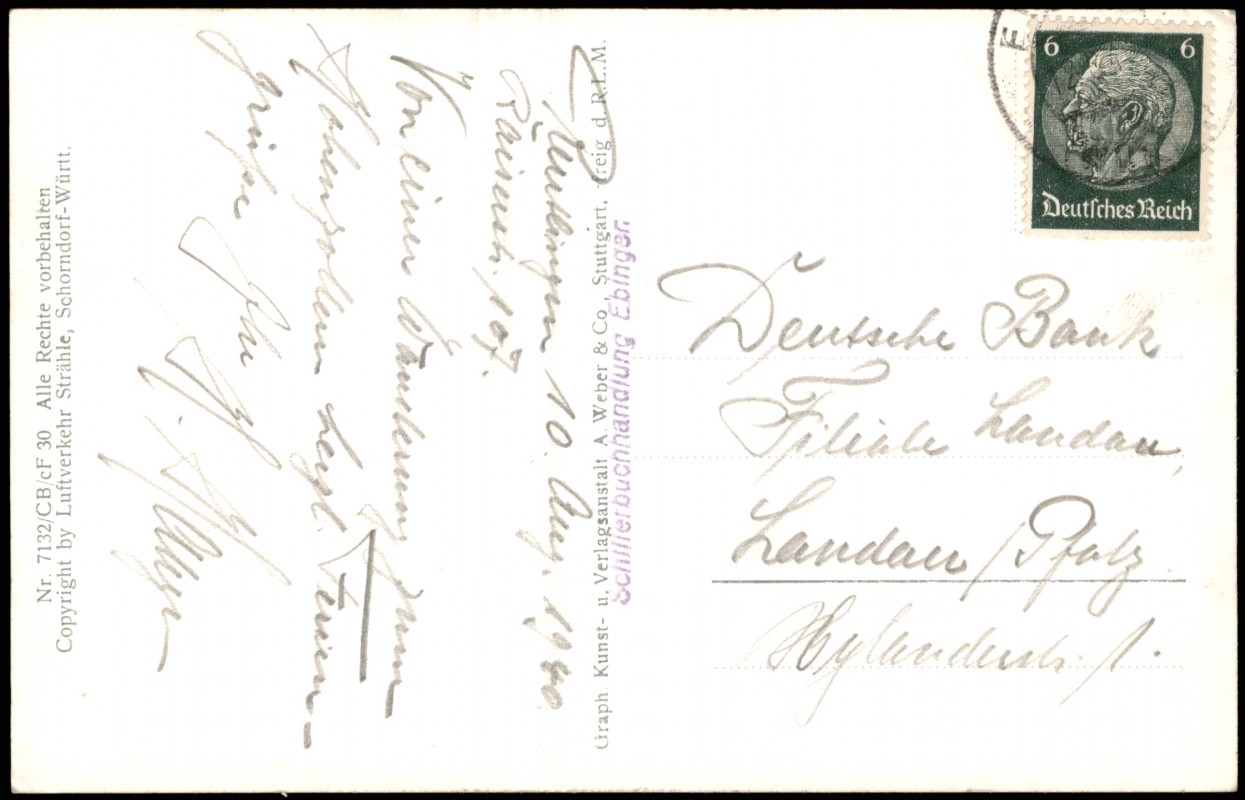 Nr. 7132/CB/cF 30 Alle Rechte vorbehalten
Copyright by Luftverkehr Strähle, Schorndorf-Württ.
10. Aug. 1940
107.
Von einer Wanderung
Hohenzollern
Ferien-
Grüße
Graph. Kunst- u. Verlagsanstalt A. Weber & Co., Stuttgart, freig d. R.L.M.
Schillerbuchhandlung Ebingen
6 6
Deutsches Reich
Deutsche Bank
Filiale Landau,
Landau / Pfalz
Hylanderstr. 1.